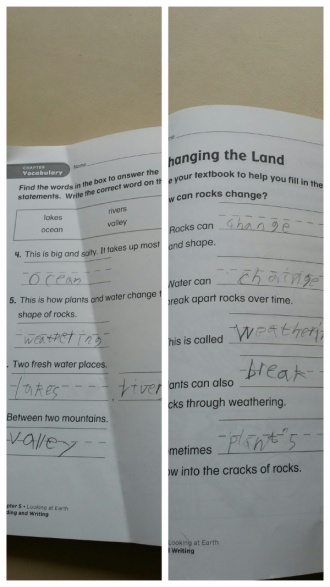 CHAPTER
Vocabulary
Name
Find the words in the box to answer the
statements. Write the correct word on th
lakes rivers
ocean valley
4. This is big and salty. It takes up most
ocean
5. This is how plants and water change t
shape of rocks.
weathering
. Two fresh water places.
lakes, river
Between two mountains.
valley
pter 5 • Looking at Earth
ding and Writing
hanging the Land
e your textbook to help you fill in the
w can rocks change?
Rocks can change
and shape.
Water can chainge
break apart rocks over time.
his is called weatherin
ants can also break
cks through weathering.
ometimes plants
ow into the cracks of rocks.
Looking at Earth
d Writing